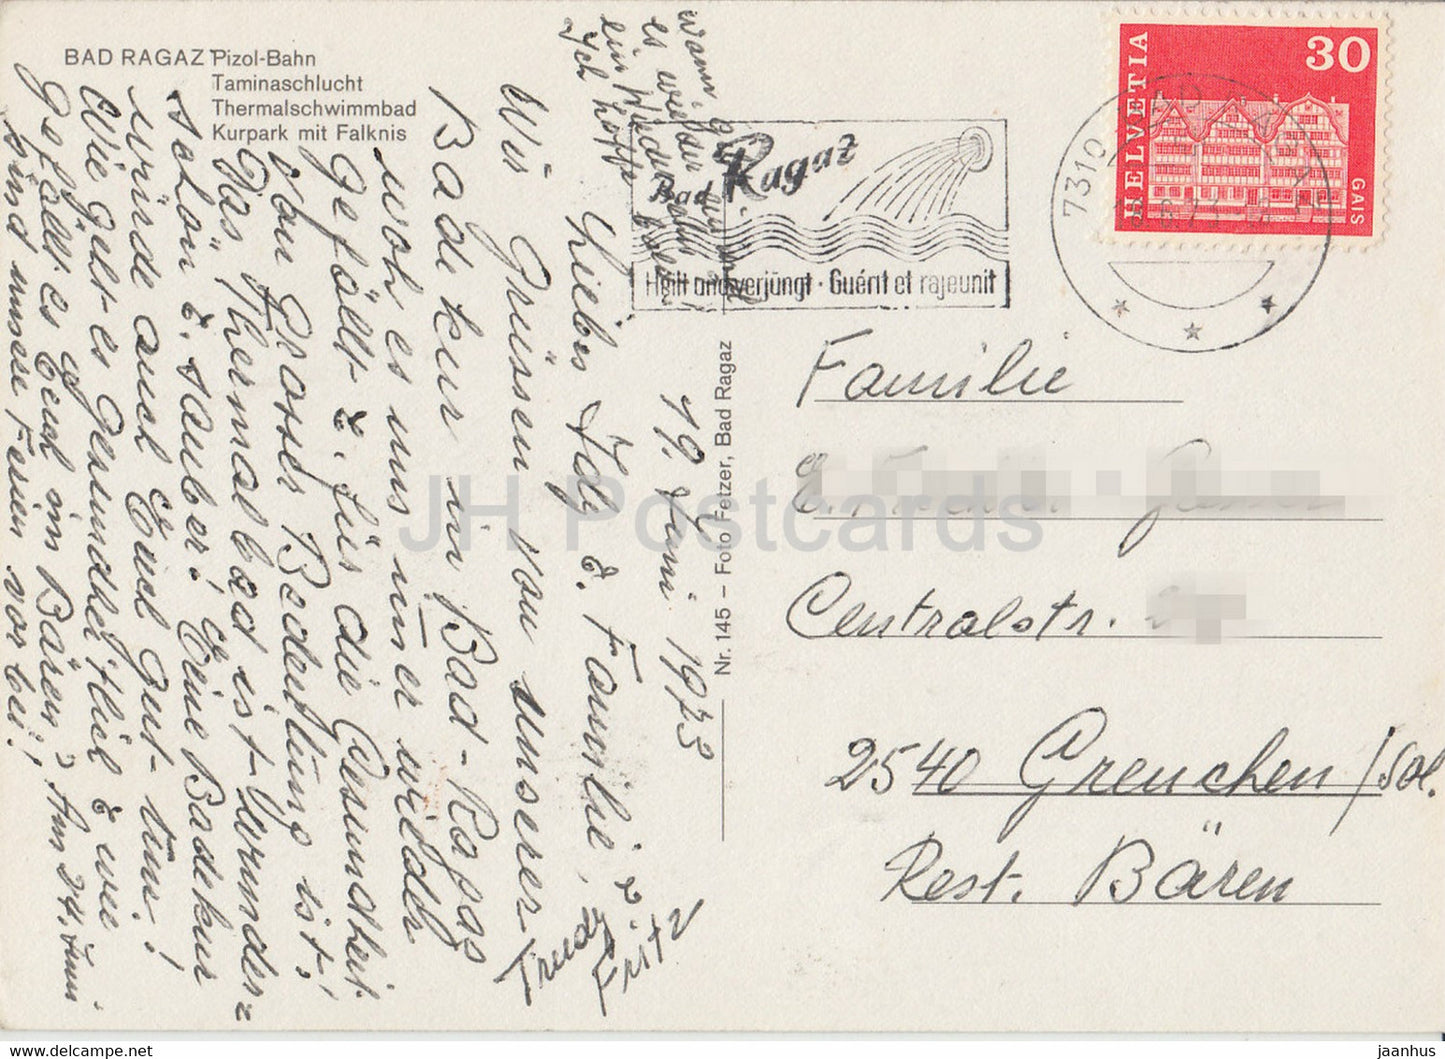 BAD RAGAZ Pizol-Bahn
Taminaschlucht
Thermalschwimmbad
Kurpark mit Falknis
19. Juni 1973
Liebe Idy & Familie,
Wir Grüssen von unserer
Badekur in Bad-Ragaz
wo es uns im̄er wieder
Gefällt & für die Gesundheit
von Grosser Bedeutung ist!
Das Thermalbad ist Wunder=
schön & sauber! Eine Badekur
würde auch Euch gut tun!
Wie geht es Gesundheitlich & wie
Gefällt es Euch im Bären? Am 24. Juni
sind unsere Ferien vorbei!
Ich hoffe
ein Wiedersehn
es wieder
wann
Trudy &
Fritz
Nr. 145 – Foto Fetzer, Bad Ragaz
Bad Ragaz
Heilt und verjüngt · Guérit et rajeunit
7310 BAD RAGAZ
HELVETIA
30
GAIS
Familie
Centralstr.
2540 Grenchen/Sol.
Rest. Bären
JH Postcards
www.delcampe.net
jaanhus